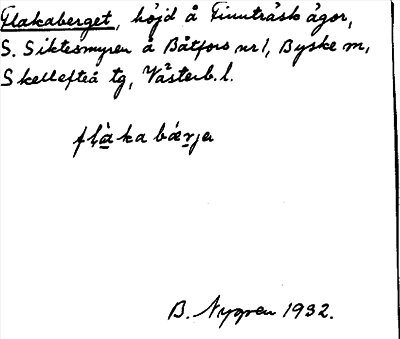 Flakaberget, höjd å Finnträsk ägor,
S. Siktesmyren å Båtfors nr 1, Byske sn,
Skellefteå tg, Västerb. l.
flàka bǽrja
B. Nygren 1932.